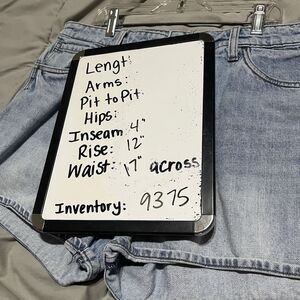 Lengt:
Arms:
Pit to Pit:
Hips:
Inseam: 4"
Rise: 12"
Waist: 17" across
Inventory: 9375